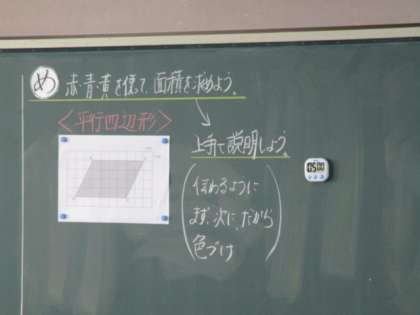 め 赤・青・黄を使って、面積を求めよう。
<平行四辺形>
上手に説明しよう。
伝わるように
まず、次に、だから
色づけ
05:00